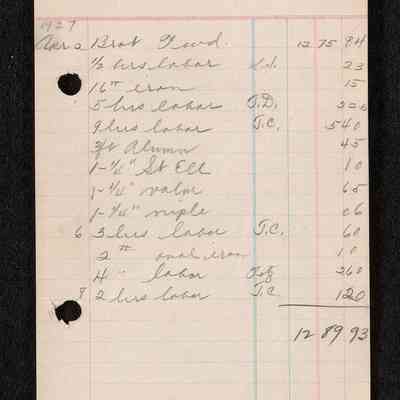 1927
Apr 2 Brot Fowd. 12 75 84
1/2 hrs labor 23
16# iron 15
5 hrs labor T.D. 300
9 hrs labor T.C. 540
3ft Alumn 45
1-1/4" St Ell 10
1-1/4" valve 65
1-1/4" niple 06
6 3 hrs labor T.C. 60
2# iron 10
4 " labor 260
8 2 hrs labor T.C. 120
12 89 93